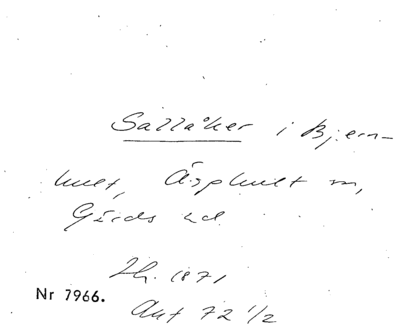 Sallåker i Bjern-
hult, Äsphult sn,
Gärds hd.
Th. 1871
Nr 7966.
Akt 72 1/2